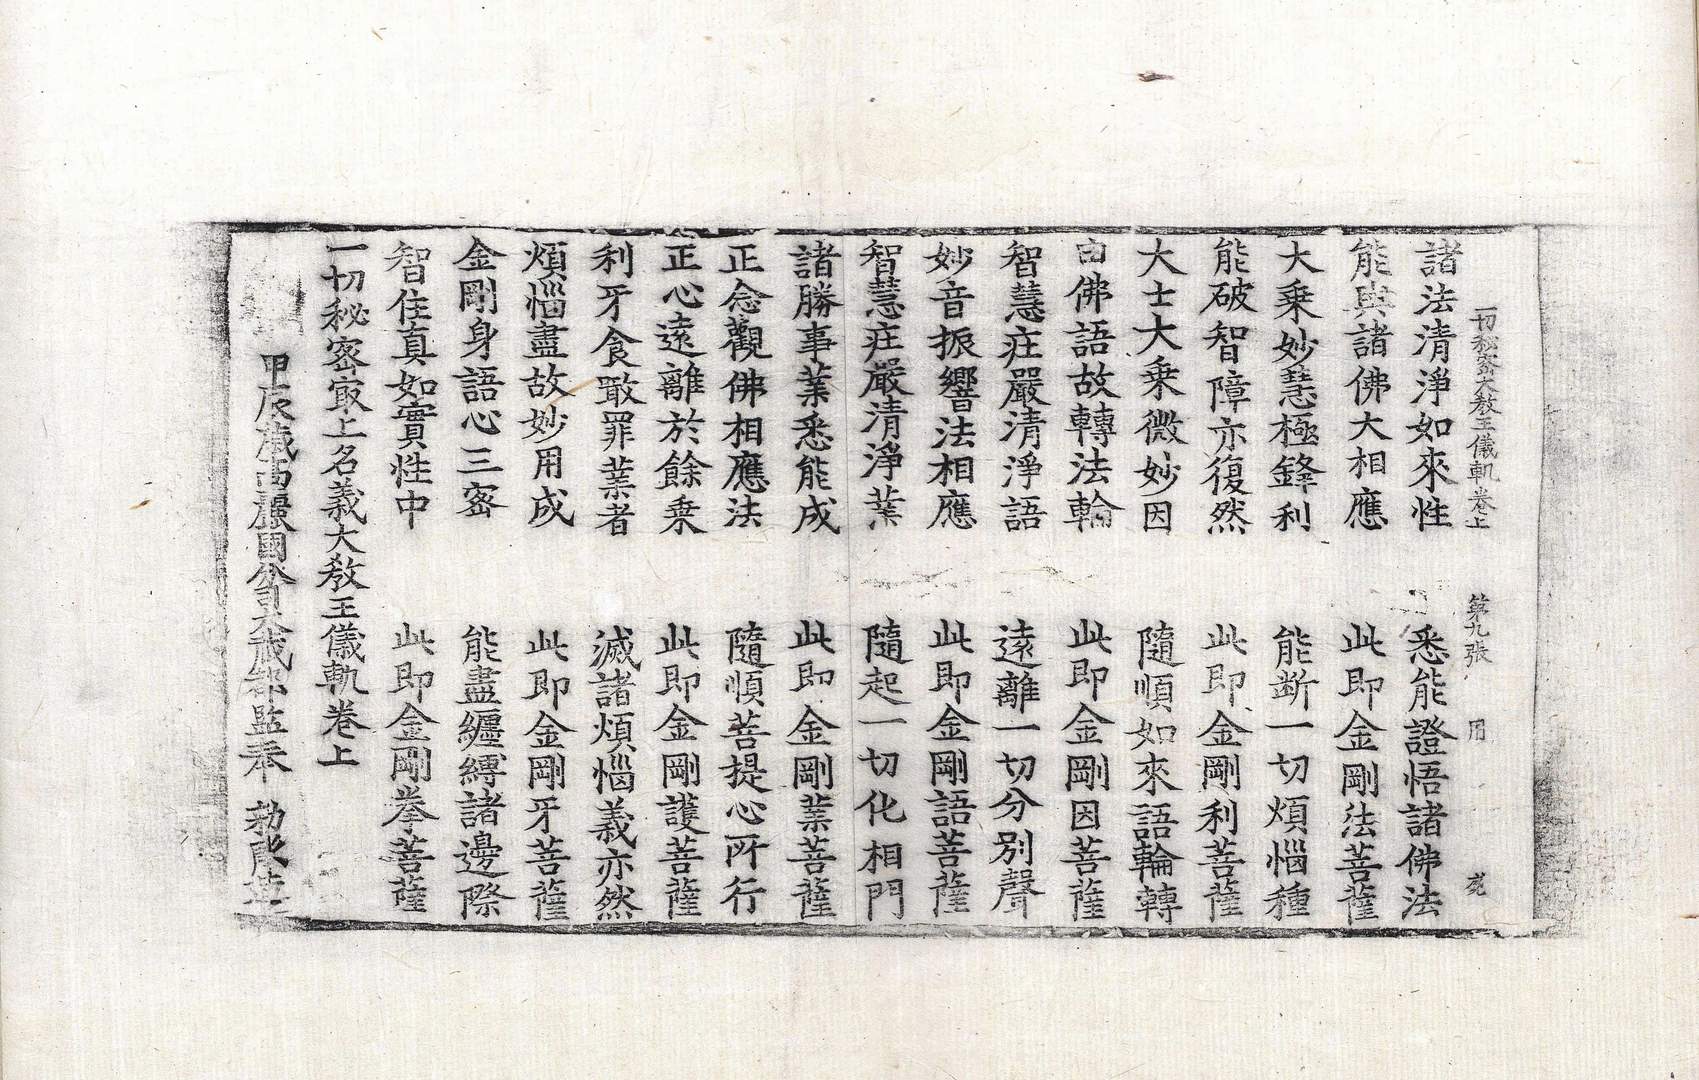 一切秘密大教王儀軌卷上 第九張 用
諸法清淨如來性 悉能證悟諸佛法
能與諸佛大相應 此即金剛法菩薩
大乘妙慧極鋒利 能断一切煩惱種
能破智障亦復然 此即金剛利菩薩
大士大乘微妙因 隨順如來語輪轉
由佛語故轉法輪 此即金剛因菩薩
智慧莊嚴清淨語 遠離一切分別聲
妙音振響法相應 此即金剛語菩薩
智慧莊嚴清淨業 隨起一切化相門
諸勝事業悉能成 此即金剛業菩薩
正念觀佛相應法 隨順菩提心所行
正心遠離於餘乘 此即金剛護菩薩
利牙食噉罪業者 滅諸煩惱義亦然
煩惱盡故妙用成 此即金剛牙菩薩
金剛身語心三密 能盡纏縛諸邊際
智住真如實性中 此即金剛拳菩薩
一切秘密㝡上名義大教王儀軌卷上
甲辰歲高麗國分司大藏都監奉 勑彫造